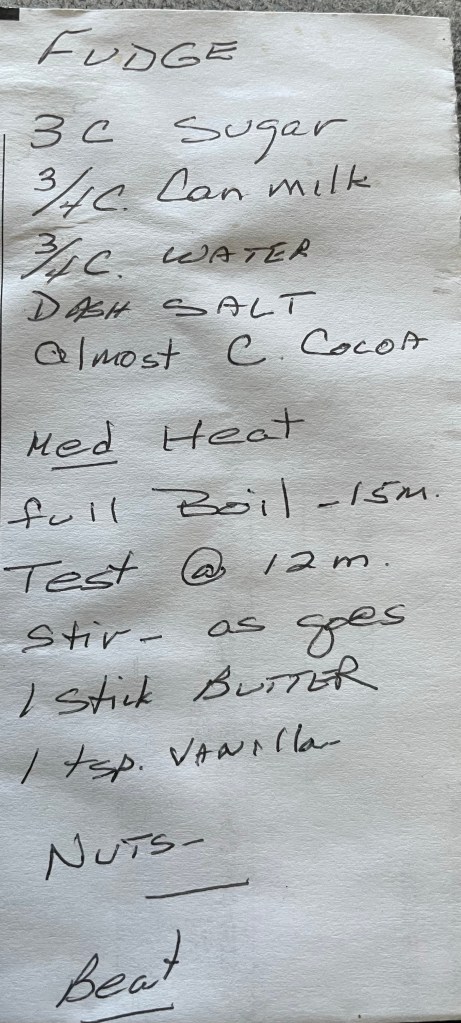 FUDGE
3 C Sugar
3/4 C. Can milk
3/4 C. WATER
DASH SALT
Almost C. COCOA
Med Heat
full Boil - 15 m.
Test @ 12 m.
Stir - as goes
1 Stick BUTTER
1 tsp. VANIlla
NUTS -
Beat